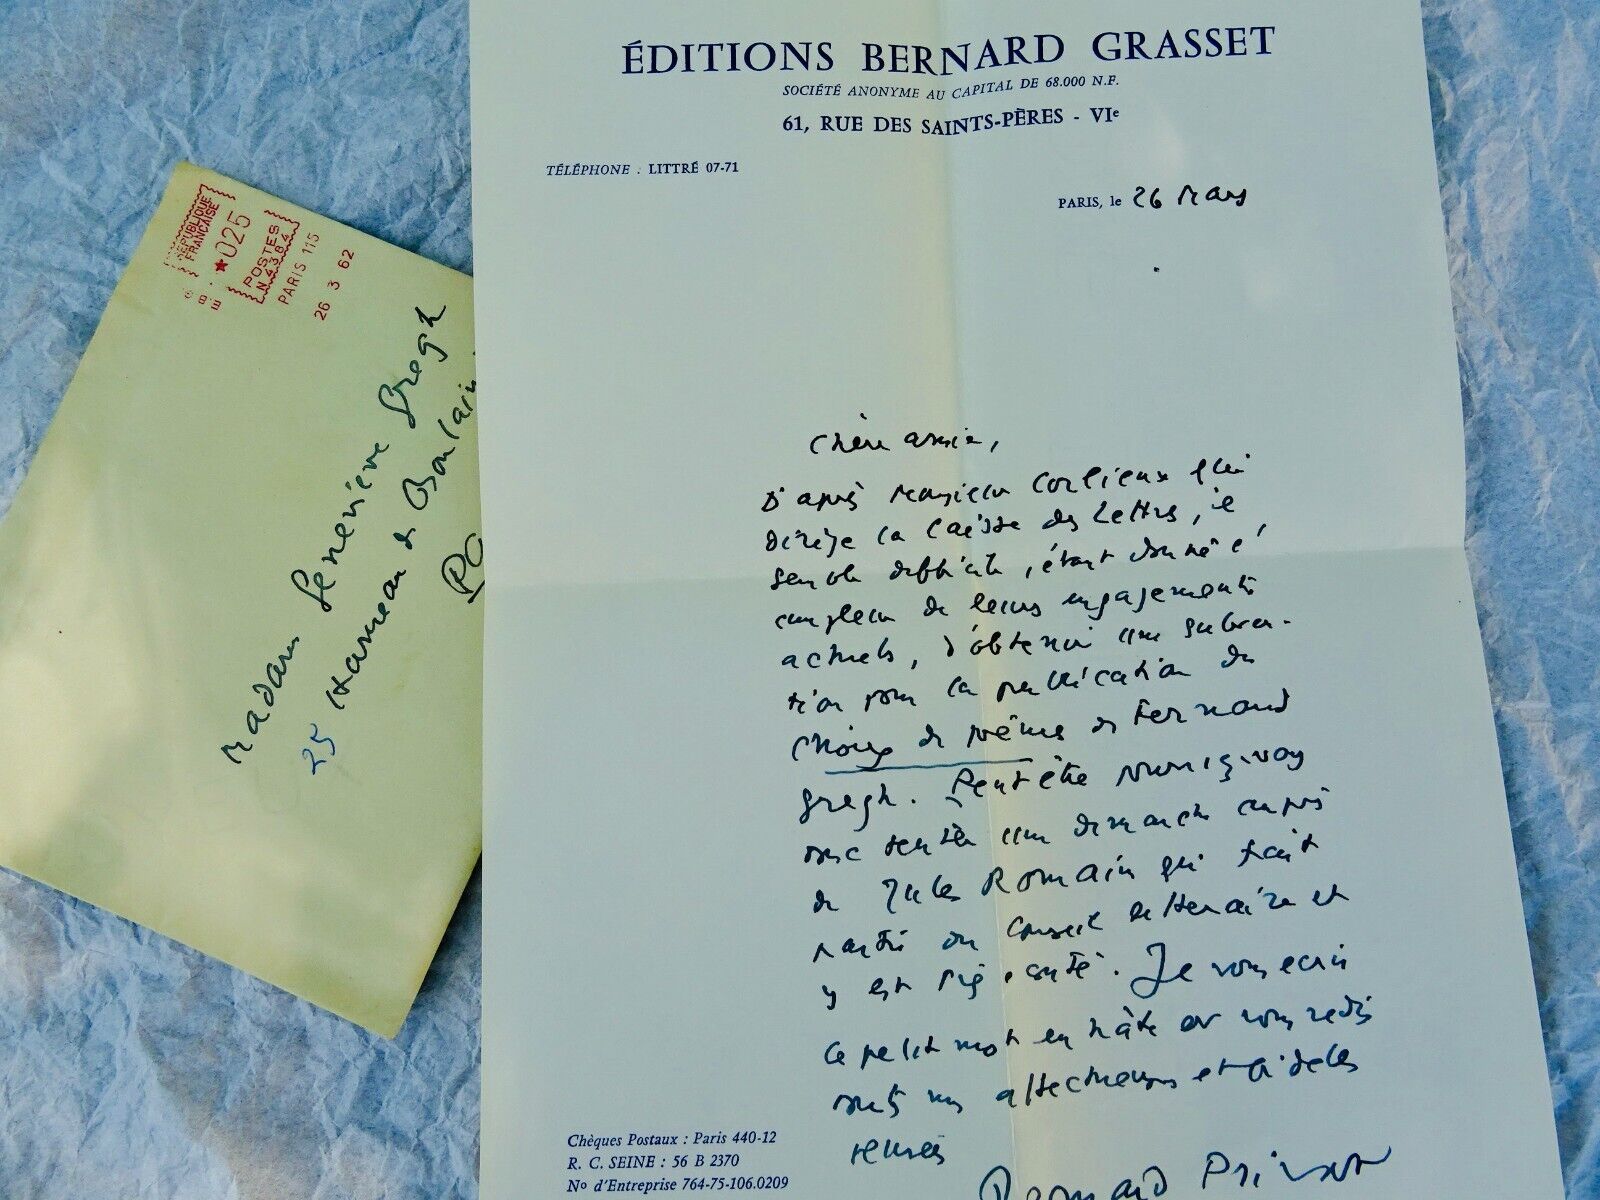 ÉDITIONS BERNARD GRASSET
SOCIÉTÉ ANONYME AU CAPITAL DE 68.000 N.F.
61, RUE DES SAINTS-PÈRES - VIe
TÉLÉPHONE : LITTRÉ 07-71
PARIS, le 26 Mars
Chère amie,
D'après Monsieur Corlieux qui
dirige la Caisse des Lettres, il
semble difficile, étant donné l'
ampleur de leurs engagements
actuels, d'obtenir une subven-
tion pour la publication du
Choix de poèmes de Fernand
Gregh. Peut être pourriez-vous
tenter une démarche auprès
de Jules Romain qui fait
partie du Conseil littéraire et
y est très écouté. Je vous écris
ce petit mot en hâte et vous redis
mes affectueuses et fidèles
pensées
Bernard Privat
Chèques Postaux : Paris 440-12
R. C. SEINE : 56 B 2370
No d'Entreprise 764-75-106.0209
RÉPUBLIQUE
FRANÇAISE
★025
POSTES
N.4384
PARIS 115
26 3 62
Madame Geneviève Gregh
25 Hameau de Boulain